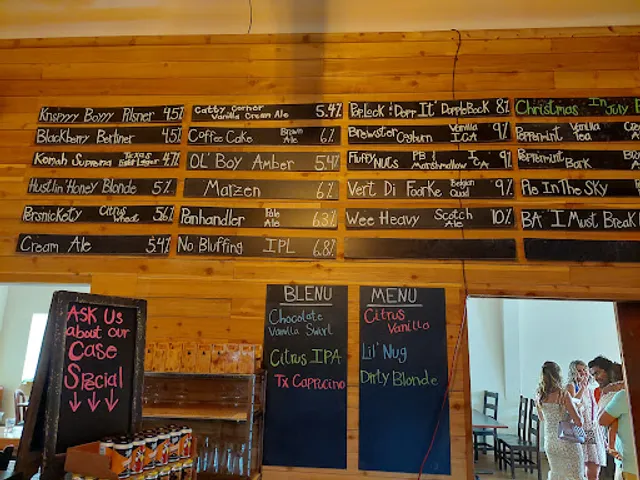 Knappyy Boyyy Pilsner 4.5%
Blackberry Berliner 4.5%
Komah Suprema Texas Light Lager 4.7%
Hustlin' Honey Blonde 5%
Persnickety Citrus Wheat 5.6%
Cream Ale 5.4%
Catty Corner Vanilla Cream Ale 5.4%
Coffee Cake Brown Ale 6%
OL' Boy Amber 5.4%
Marzen 6%
Panhandler Pale Ale 6.3%
No Bluffing IPL 6.8%
Pop Lock & Dopp It' Dopple Bock 8%
Brewster Cogburn Vanilla ICA 9%
Fluffy Nuts PB / Marshmallow ICA 9%
Vert Di Foarke Belgian Quad 9%
Wee Heavy Scotch Ale 10%
Christmas In July
Peppermint Vanilla Tea
Peppermint Bark
Pie In The Sky
BA I Must Break
BLENU MENU
Chocolate Vanilla Swirl
Citrus IPA
Tx Capricino
Citrus Vanilla
Lil' Nug
Dirty Blonde
Ask Us
about our
Case
Special